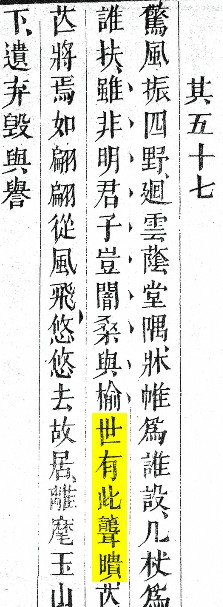 其五十七
驚風振四野、廻雲蔭堂隅、牀帷爲誰設、几杖爲
誰扶、雖非明君子豈闇桑與榆世有此聾瞶芒
芒將焉如翩翩從風飛、悠悠去故居、離麾玉山
下、遺弃毀與譽